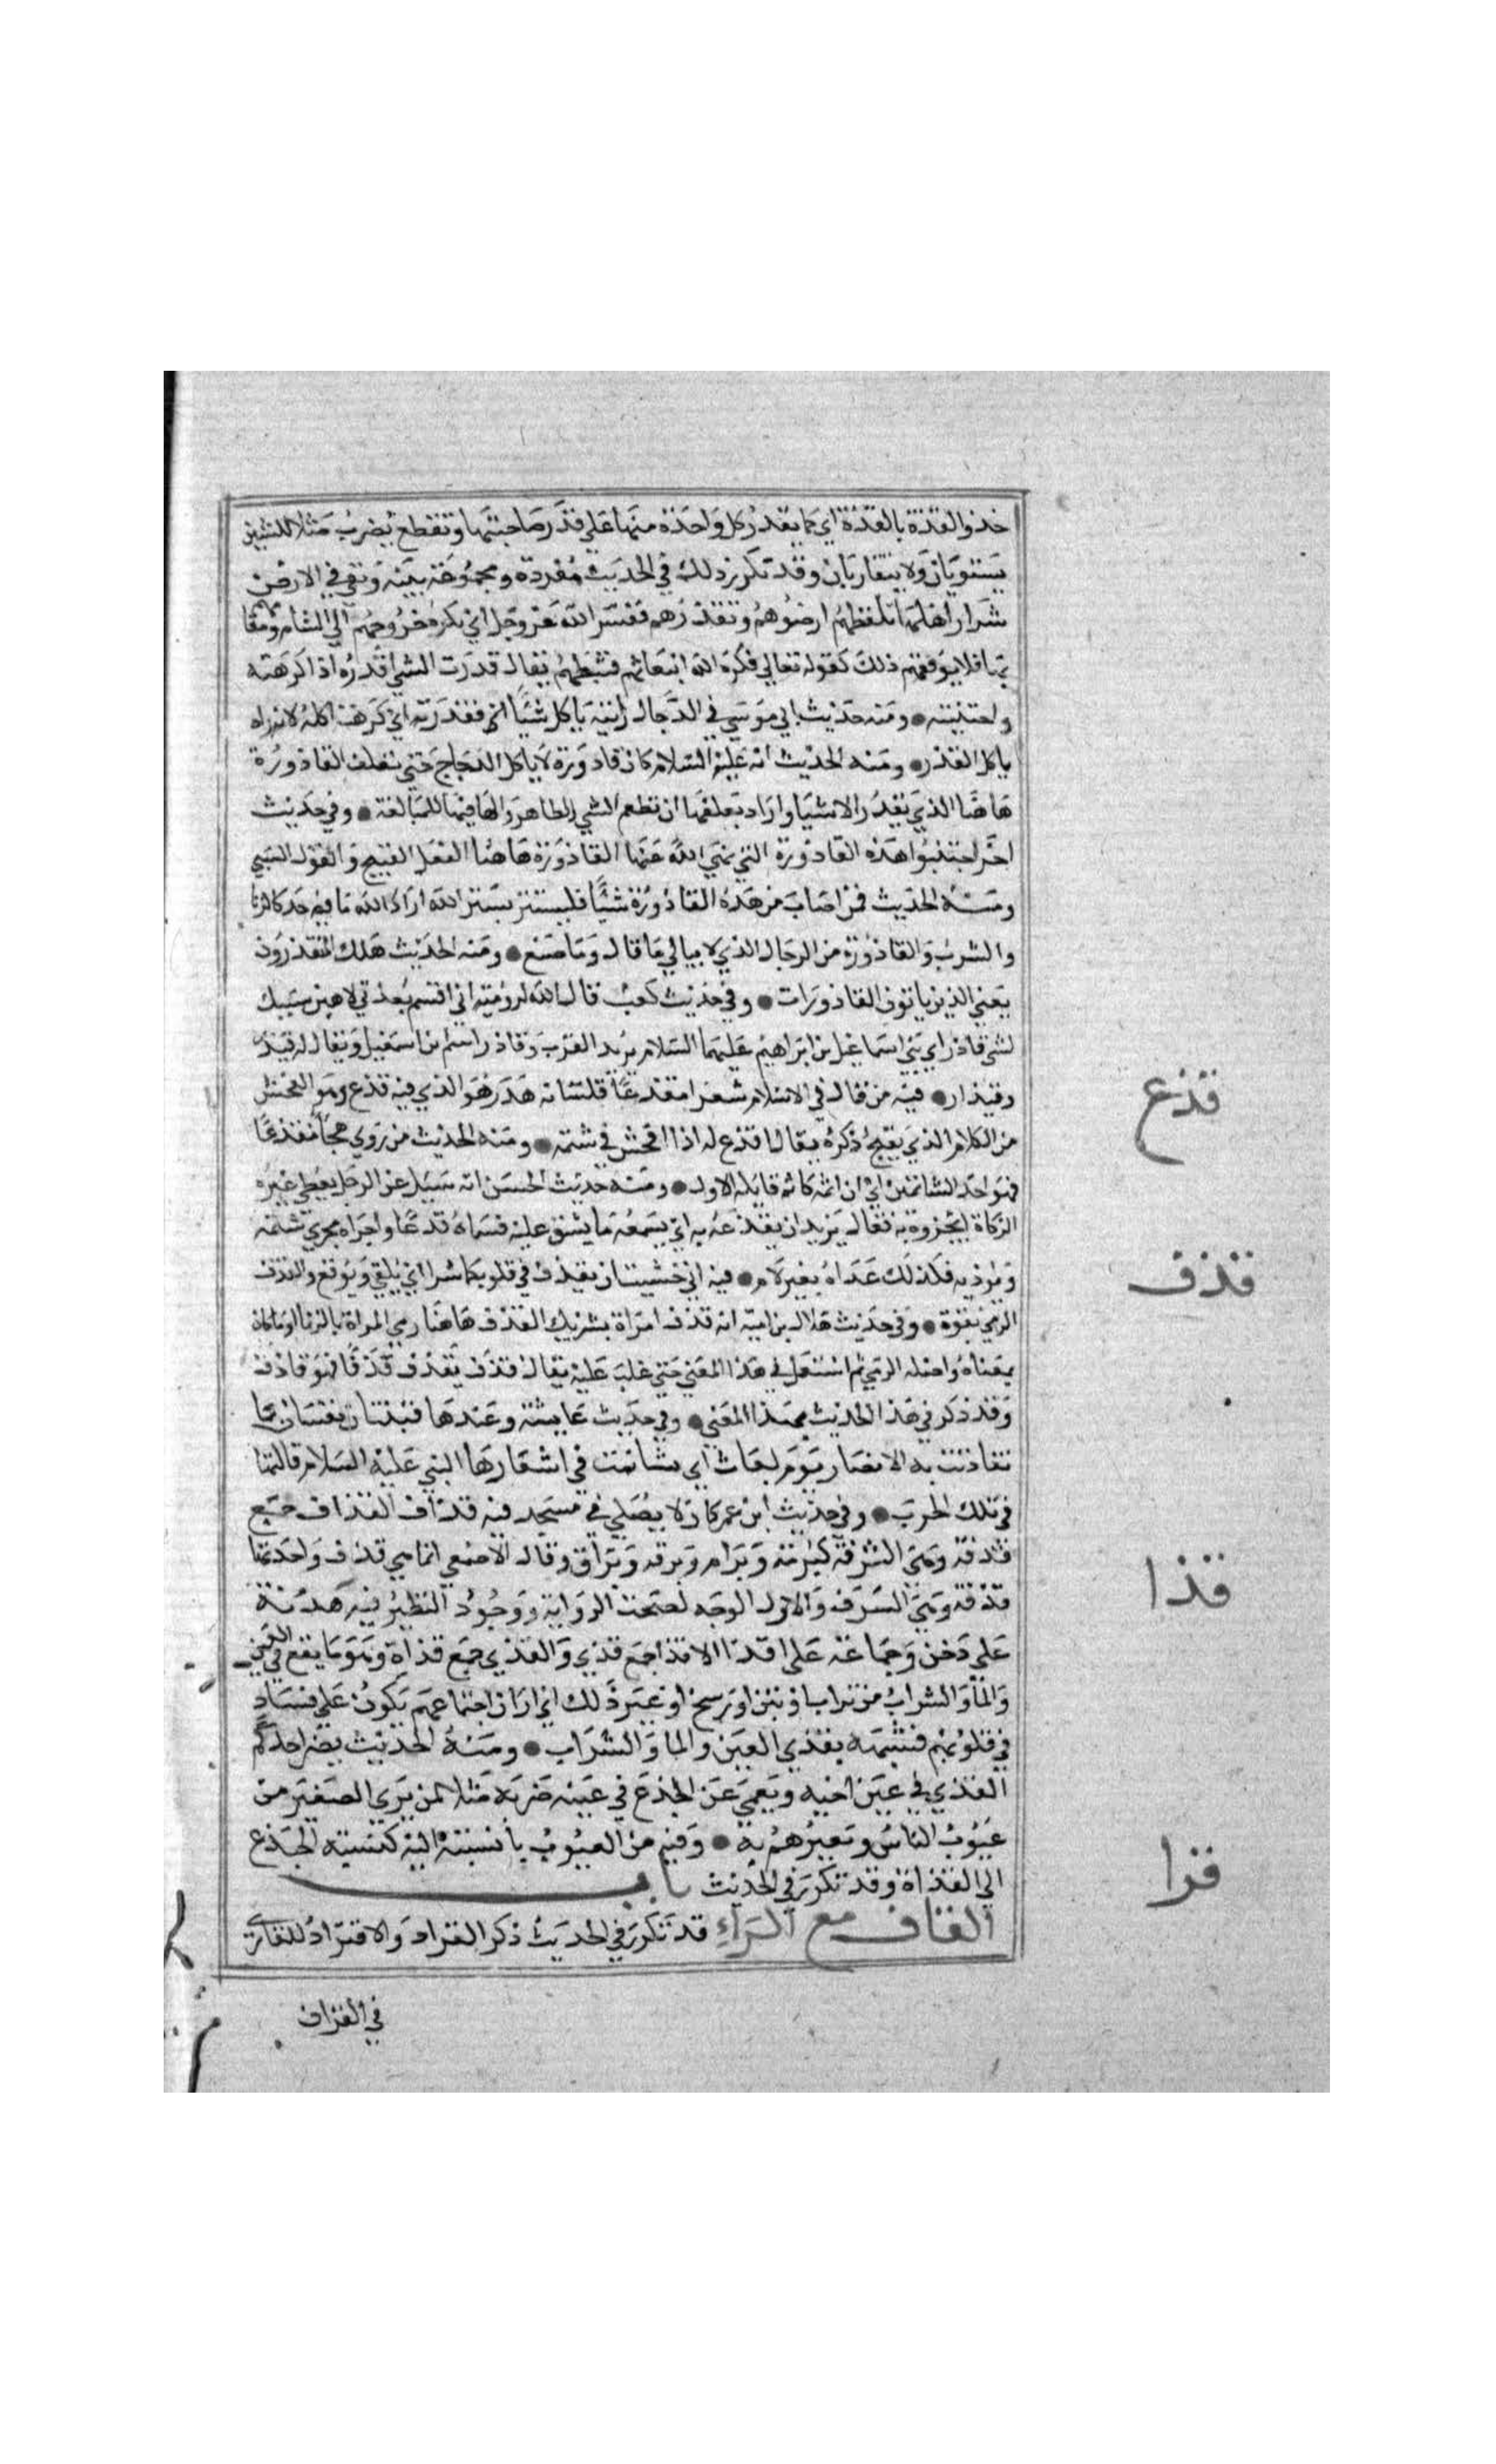 حذو القذة بالقذة اي كما يقدر كل واحدة منها علي قدر صاحبتها وتقطع يضرب مثلا للشيين
يستويان ولا يتقاربان وقد تكرر ذلك في الحديث مفردة ومجموعة بينه وبقي في الارض
شرار اهلها تلفظهم ارضوهم وتقذرهم نفس الله عز وجل اي يكره خروجهم الي الشام ومقا
بها فلا يوفقهم ذلك كقوله تعالي فكره الله انبعاثهم فثبطهم يقال قذرت الشي اقذره اذا كرهته
واجتنبته ومنه حديث ابي موسي في الدجاج رايته ياكل شيا اي فقذرته اي كرهت اكله لانه راه
ياكل القذر ومنه الحديث انه عليه السلام كان قاذورة لا ياكل الدجاج حتي تعلف القاذورة
هاهنا الذي يقذر الاشيا واراد بعلفها ان تطعم الشي الطاهر والها فيها للمبالغة وفي حديث
اخر اجتنبوا هذه القاذورة التي نهي الله عنها القاذورة هاهنا الفعل القبيح والقول السيي
ومنه الحديث فمن اصاب من هذه القاذورة شيا فليستتر بستر الله اراد الله ما فيه حد كالزنا
والشرب والقاذورة من الرجال الذي لا يبالي ما قال وما صنع ومنه الحديث هلك المتقذرون
يعني الذين ياتون القاذورات وفي حديث كعب قال الله لرومية اني اقسم بعزتي لاهبن سبيك
لبني قاذر اي بني اسماعيل بن ابراهيم عليهما السلام يريد العرب وقاذر اسم بن اسمعيل ويقال له قيذر
وقيذار فيه من قال في الاسلام شعرا مقذعا فلسانه هدر هو الذي فيه قذع وهو الفحش
من الكلام الذي يقبح ذكره يقال اقذع له اذا افحش في شتمه ومنه الحديث من روي هجا مقذعا
فهو احد الشاتمين اي ان اثمه كاثم قايله الاول ومنه حديث الحسن انه سيل عن الرجل يعطي غيره
الزكاة ايخبره به فقال يريد ان يقذعه به اي يسمعه ما يشق عليه فسماه قذعا واجراه مجري شتمه
ويوذيه فلذلك عداه بغير لام فيه اني خشيت ان يقذف في قلوبكما شرا اي يلقي ويوقع والقذف
الرمي بقوة وفي حديث هلال بن امية انه قذف امراة بشريك القذف هاهنا رمي المراة بالزنا او ما كان
بمعناه واصله الرمي ثم استعمل في هذا المعني حتي غلب عليه يقال قذف يقذف قذفا فهو قاذف
وقد ذكر في هذا الحديث بهذا المعني وفي حديث عايشة وعندها قينتان تغنيان بما
تقاذفت به الانصار يوم بعاث اي تشاتمت في اشعارها النبي عليه السلام قالتها
في تلك الحرب وفي حديث ابن عمر كان لا يصلي في مسجد فيه قذاف القذاف جمع
قذفة وهي الشرفة كبرمة وبرام وبرقة وبراق وقال الاصمعي انما هي قذف واحدتها
قذفة وهي الشرف والاول الوجه لصحة الرواية ووجود النظير فيه هدنة
علي دخن وجماعة علي اقذا الاقذا جمع قذي والقذي جمع قذاة وهو ما يقع في العين
والما والشراب من تراب او تبن او وسخ او غير ذلك اي اراد ان اجتماعهم يكون علي فساد
في قلوبهم فشبهه بقذي العين والما والشراب ومنه الحديث يبصر احدكم
القذي في عين اخيه ويعمي عن الجذع في عينه ضربه مثلا لمن يري الصغير من
عيوب الناس ويعيرهم به وفيه من العيوب ما نسبته اليه كنسبة الجذع
الي القذاة وقد تكرر في الحديث باب
القاف مع الراء قد تكرر في الحديث ذكر القراة والاقتراد للقاري
في القراف
قذع
قذف
قذا
قرا